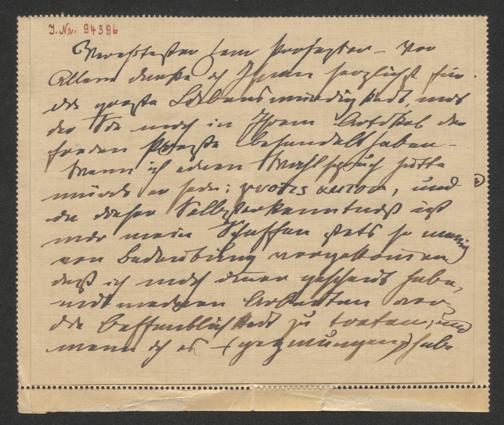 I. Nr. 94596
Verehrtester Herr Professor – Vor
Allem danke ich Ihnen herzlichst für
die große Liebenswürdigkeit, mit
der Sie mich in Ihrem Artikel der
freien Presse behandelt haben –
Wenn ich einen Wahlspruch hätte
würde er sein: γνῶθι σεαυτόν, und
in dieser Selbsterkenntniß ist
mir mein Schaffen stets so wenig
von Bedeutung vorgekommen,
daß ich mich immer gescheut habe,
mit meinen Arbeiten vor
die Oeffentlichkeit zu treten; und
wenn ich es (gezwungen) habe